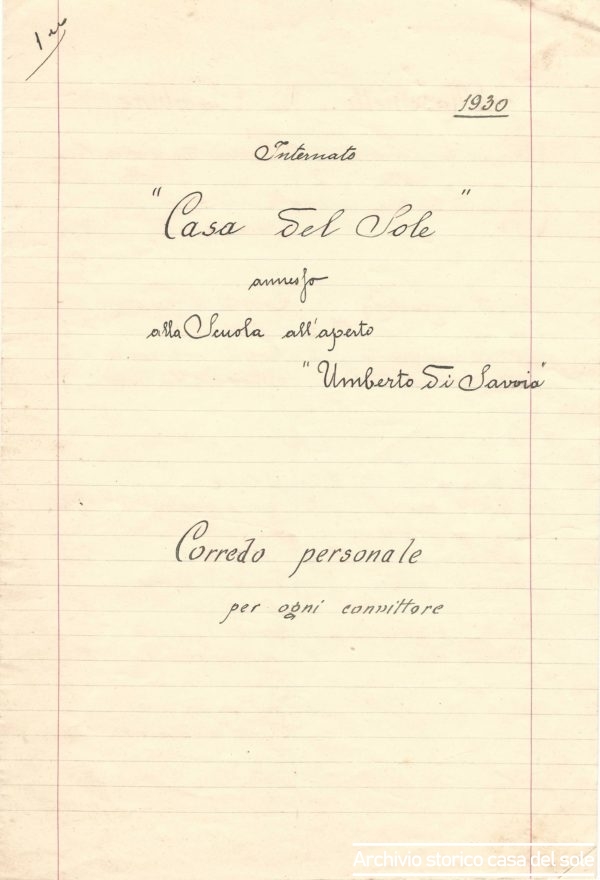 1930
Internato
"Casa del Sole"
annesso
alla Scuola all'aperto
"Umberto di Savoia"
Corredo personale
per ogni convittore
Archivio storico casa del sole